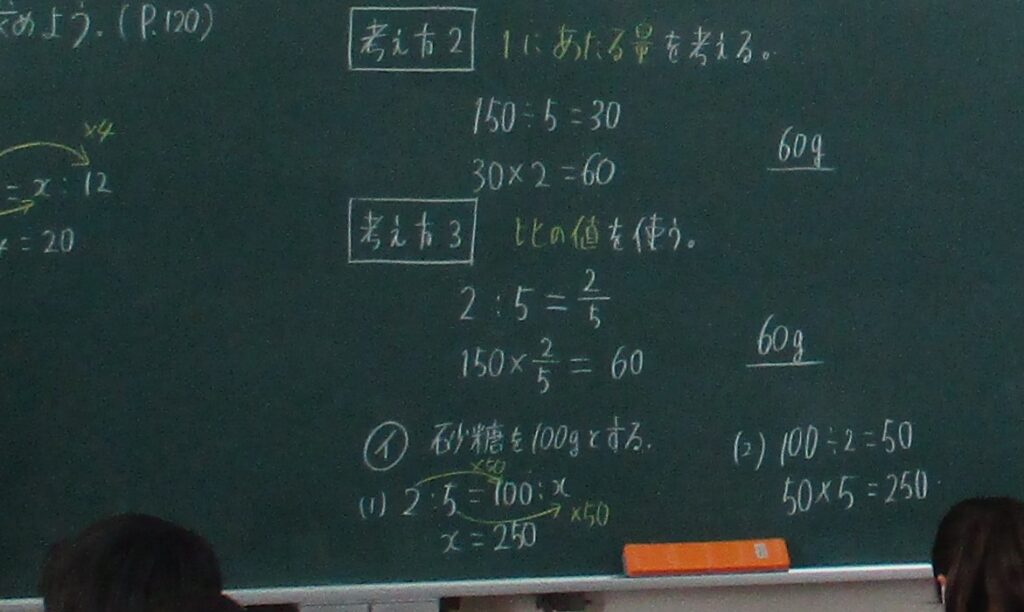 めよう.(P.120)
×4
= x : 12
x = 20
考え方2 1にあたる量を考える。
150÷5=30
30×2=60
60g
考え方3 比の値を使う。
2:5=2/5
150×2/5=60
60g
イ 砂糖を100gとする.
×50
(1) 2:5=100:x
×50
x=250
(2) 100÷2=50
50×5=250